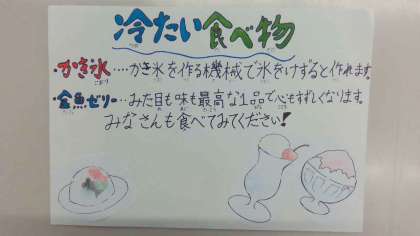 冷たい食べ物
・かき氷‥‥かき氷を作る機械で氷をけずると作れます。
・金魚ゼリー…みた目も味も最高な1品で心もすずしくなります。
みなさんも食べてみてください!